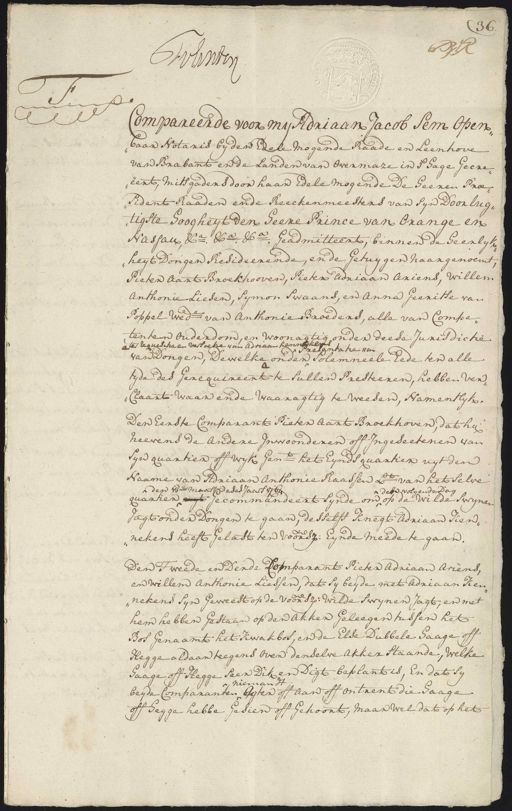 36
F
Compareerde voor my Adriaan Jacob Sem Open-
baar Notaris by den Edele Mogende Raade en Leenhove
van Brabant ende Landen van Overmaze in S'Hage Gecre-
eert, Mitsgaders door haar Edele Mogende De Heeren Pre-
sident Raaden ende Reeckenmeesters van Syn Doorlug-
tigste Hoogheyt den Heere Prince van Orange en
Nassau, &ca. &ca. &ca. Geadmitteert, binnen de Heerlyk-
heyt Dongen Resideerende, ende Getuygen naargenoemt,
Pieter Aart Broekhoven, Pieter Adriaan Ariens, Willem
Anthonie Liesen, Symon Swaans, en Anna Geerits van
Poppel Wede. van Anthonie Broeders, alle van Compe-
tenten Ouderdom, en woonagtig onder deese Jurisdictie
ter requisitie van Adriaan
van Dongen, Dewelke onder Solemneele Eede ten alle
tyde des Gerequireert te Sullen Presteeren, hebben ver-
Claart waar ende waaragtig te weesen, Namentlyk.
Den Eerste Comparant Pieter Aart Broekhoven, dat hy
neevens de Andere Inwoonderen off Ingeseetenen van
Syn quartier off wyk Gent. het Eyndsquartier uyt den
Naame van Adriaan Anthonie Raassen van het Selve
quartier Gecommandeert Synde om op de Wilde Swyne
Jagt onder Dongen te gaan, deselfs Knegt Adriaan Tien-
nekens heeft Gelast ten voorsz: Eynde Meede te gaan.
Den Tweede en Derde Comparant Pieter Adriaan Ariens,
en Willem Anthonie Liessen, dat Sy beyde met Adriaan Tien-
nekens Syn Geweest op de voorsz: Wilde Swynen Jagt, en met
hem hebben Gestaan op den Akker Geleegen tussen het
Bos Genaamt het Kwakbos, en de Else Dubbele Haage off
Hegge aldaar teegens Over denselve Akker Staande, Welke
Haage off Hegge Seer Dik en Digt beplant is, En dat Sy
beyde Comparanten niemandt agter off Aan off Ontrent die Haage
off Hegge hebbe Gesien off Gehoort, maar wel dat op het